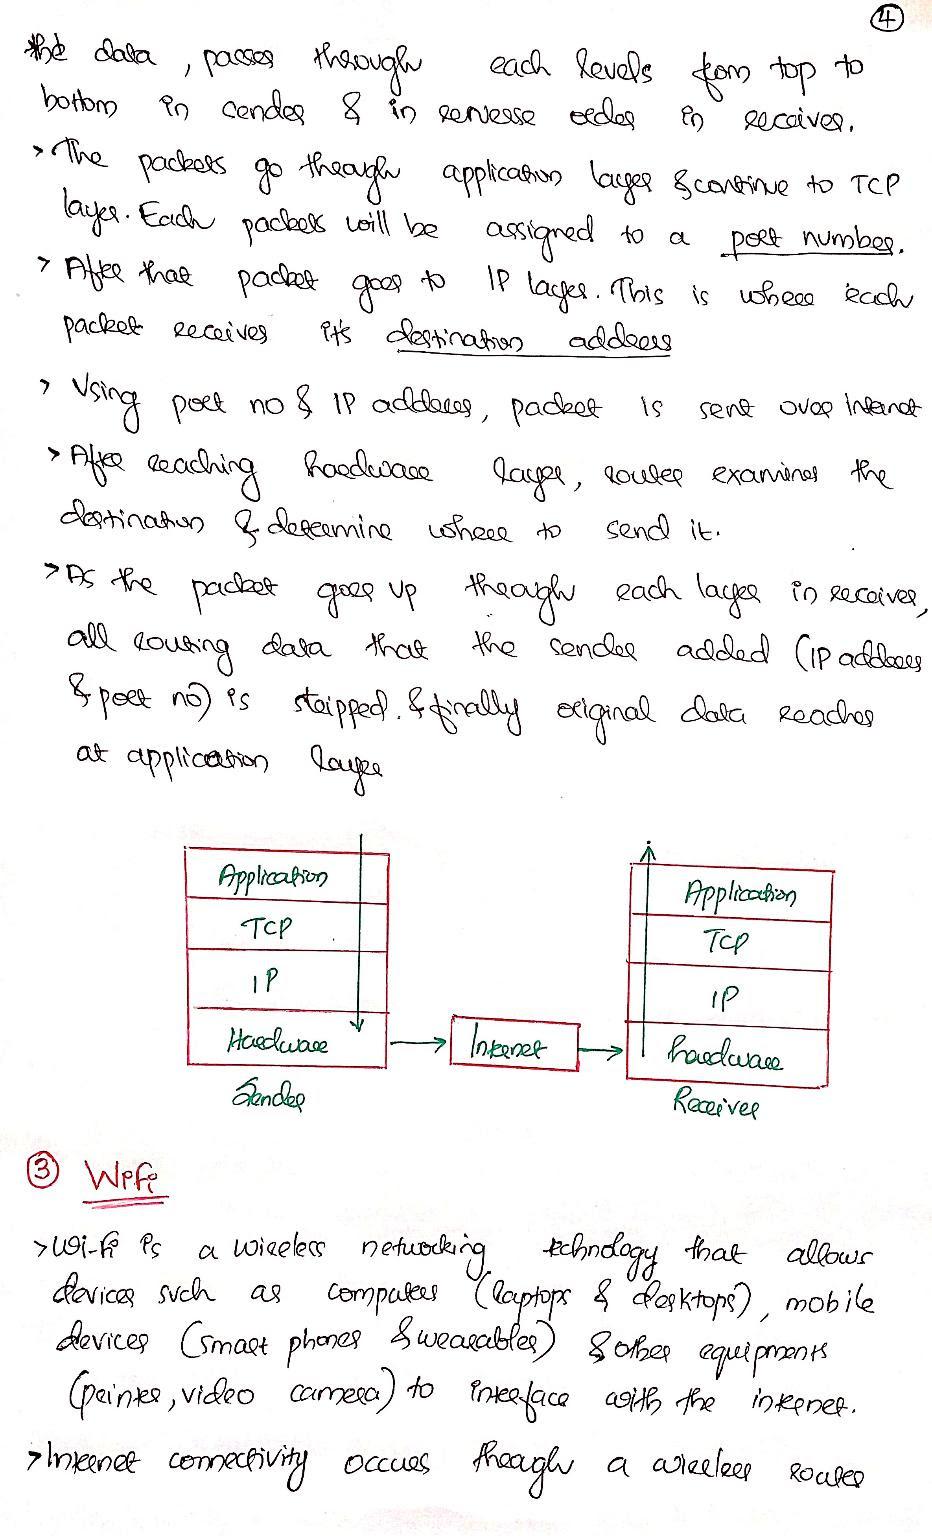 ④
the data, passes through each levels from top to
bottom in sender & in reverse order in receiver.
> The packets go through application layer & continue to TCP
layer. Each packets will be assigned to a port number.
> After that packet goes to IP layer. This is where each
packet receives it's destination address
> Using port no & IP address, packet is sent over internet
> After reaching hardware layer, router examines the
destination & determine where to send it.
> As the packet goes up through each layer in receiver,
all routing data that the sender added (IP address
& port no) is stripped. & finally original data reaches
at application layer
Application
TCP
IP
Hardware
Sender
Internet
Application
TCP
IP
hardware
Receiver
③ WiFi
> Wi-fi is a wireless networking technology that allows
devices such as computers (laptops & desktops), mobile
devices (smart phones & wearables) & other equipments
(printer, video camera) to interface with the internet.
> Internet connectivity occurs through a wireless router